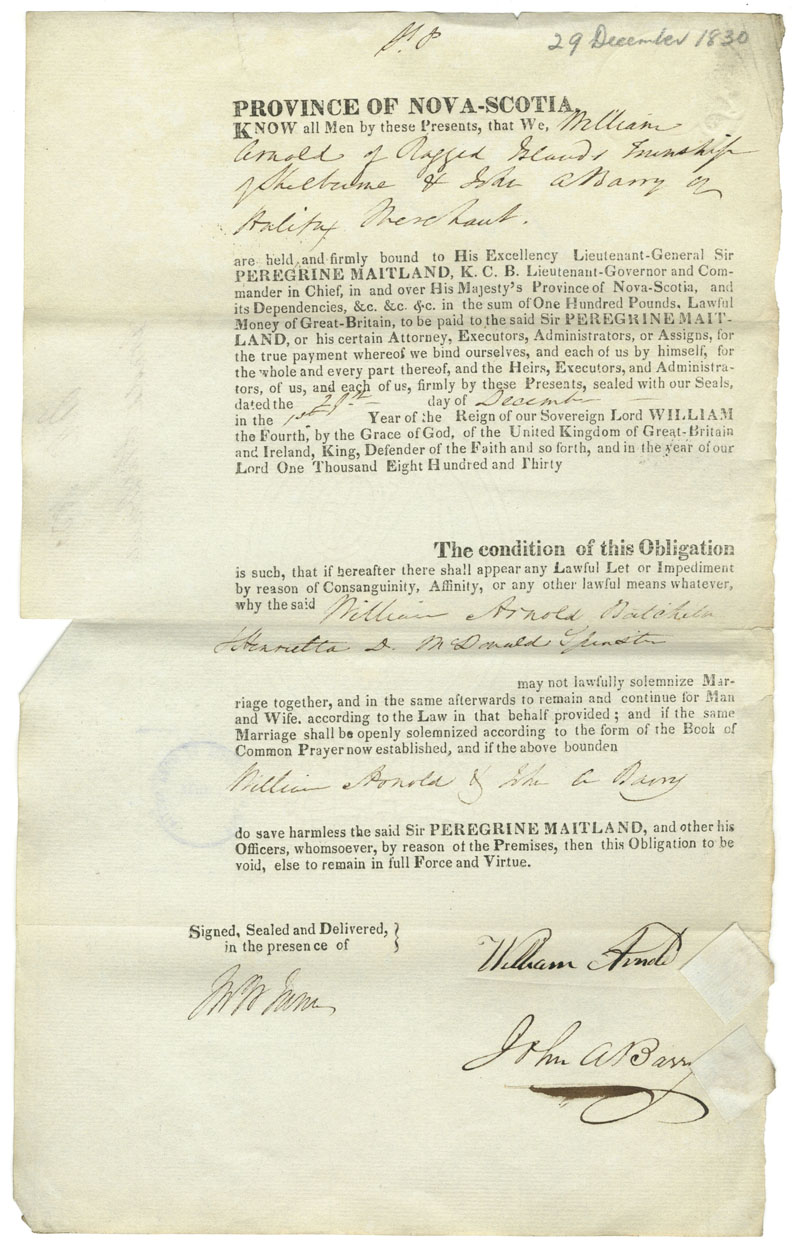 29 December 1830
PROVINCE OF NOVA-SCOTIA,
KNOW all Men by these Presents, that We, William
Arnold of Ragged Islands Township
of Shelburne & John A Barry of
Halifax Merchant.
are held and firmly bound to His Excellency Lieutenant-General Sir
PEREGRINE MAITLAND, K. C. B. Lieutenant-Governor and Com-
mander in Chief, in and over His Majesty's Province of Nova-Scotia, and
its Dependencies, &c. &c. &c. in the sum of One Hundred Pounds, Lawful
Money of Great-Britain, to be paid to the said Sir PEREGRINE MAIT-
LAND, or his certain Attorney, Executors, Administrators, or Assigns, for
the true payment whereof we bind ourselves, and each of us by himself, for
the whole and every part thereof, and the Heirs, Executors, and Administra-
tors, of us, and each of us, firmly by these Presents, sealed with our Seals,
dated the 29th day of December
in the 1st Year of the Reign of our Sovereign Lord WILLIAM
the Fourth, by the Grace of God, of the United Kingdom of Great-Britain
and Ireland, King, Defender of the Faith and so forth, and in the year of our
Lord One Thousand Eight Hundred and Thirty
The condition of this Obligation
is such, that if hereafter there shall appear any Lawful Let or Impediment
by reason of Consanguinity, Affinity, or any other lawful means whatever,
why the said William Arnold Batchelor
Henrietta D. McDonald Spinster
may not lawfully solemnize Mar-
riage together, and in the same afterwards to remain and continue for Man
and Wife. according to the Law in that behalf provided; and if the same
Marriage shall be openly solemnized according to the form of the Book of
Common Prayer now established, and if the above bounden
William Arnold & John A Barry
do save harmless the said Sir PEREGRINE MAITLAND, and other his
Officers, whomsoever, by reason of the Premises, then this Obligation to be
void, else to remain in full Force and Virtue.
Signed, Sealed and Delivered,
in the presence of
William Arnold
John A Barry